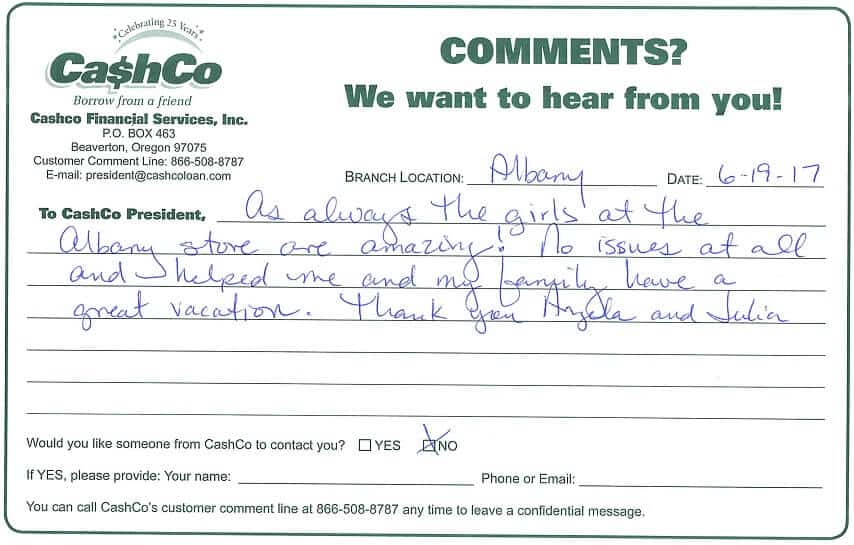 Celebrating 25 Years
Ca$hCo
Borrow from a friend
Cashco Financial Services, Inc.
P.O. BOX 463
Beaverton, Oregon 97075
Customer Comment Line: 866-508-8787
E-mail: president@cashcoloan.com
COMMENTS?
We want to hear from you!
BRANCH LOCATION: Albany DATE: 6-19-17
To CashCo President, As always the girls at the
Albany store are amazing! No issues at all
and helped me and my family have a
great vacation. Thank you Angela and Julia
Would you like someone from CashCo to contact you? YES NO
If YES, please provide: Your name: Phone or Email:
You can call CashCo's customer comment line at 866-508-8787 any time to leave a confidential message.